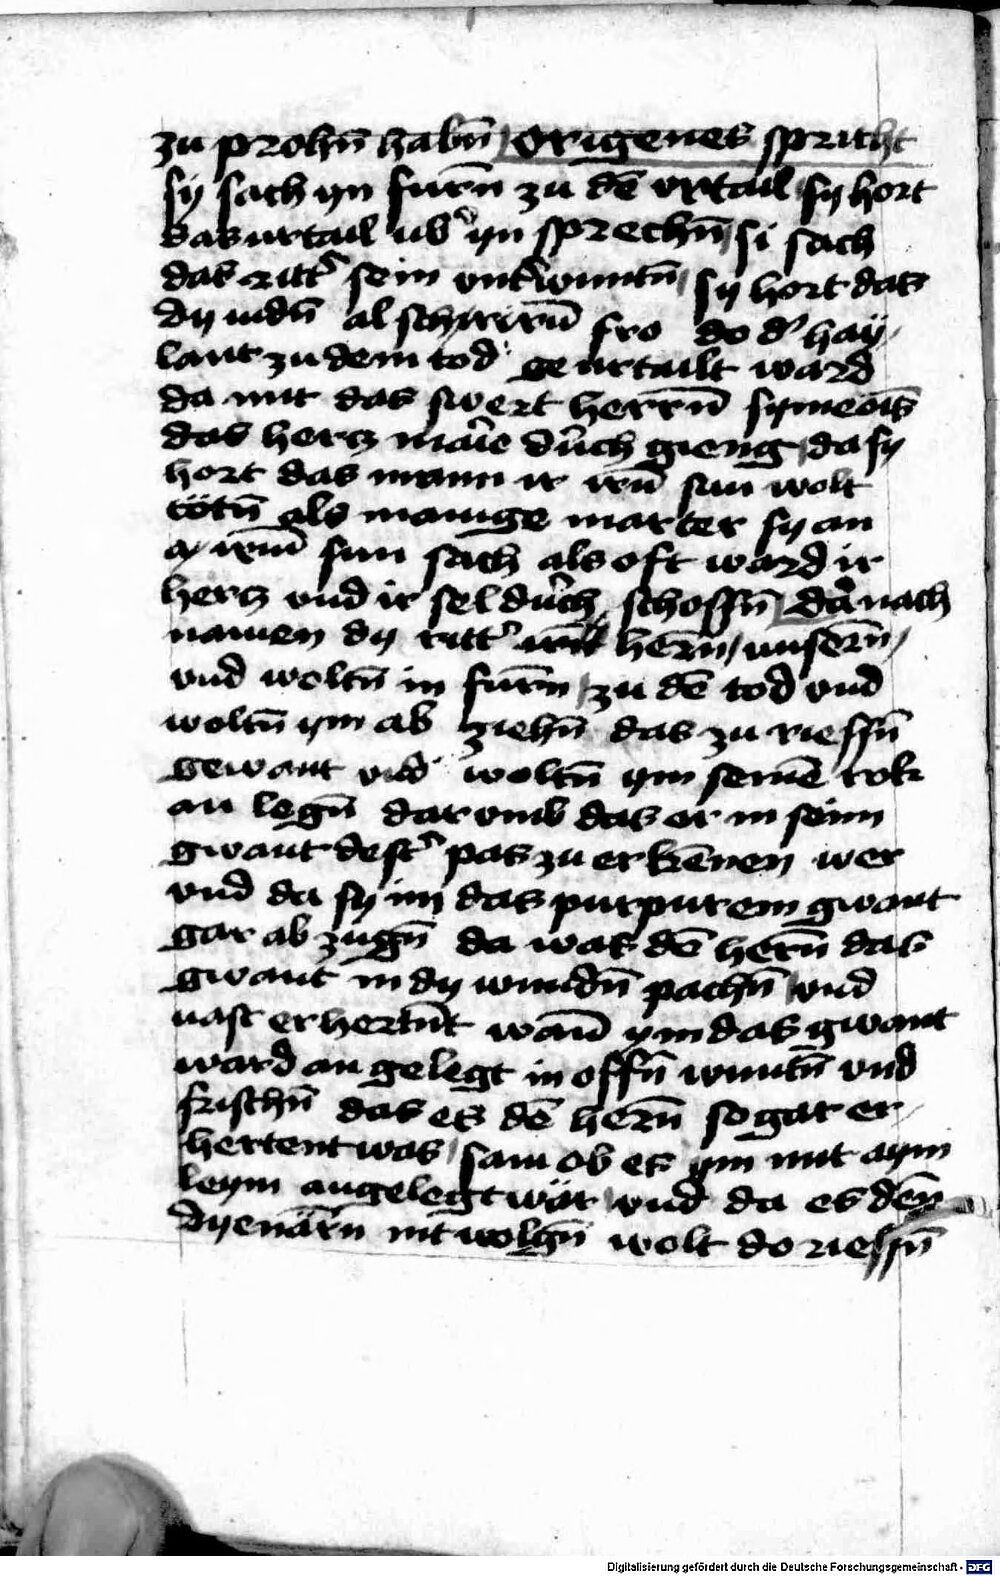 zu prohn̄ habn̄ Origenes spricht
sy sach yn furn̄ zu dē vrtail sy hort
das urtail ub' yn sprechn̄ si sach
das ritt' sein vnt'wuntn̄ sy hort das
dy iudn̄ al schrirn̄ fro do d' hay
lant zu dem tod geurtailt ward
da mit das swert herrn̄ symeōis
das hertz maīe dūch gieng da sy
hort das mann ir irn̄ sun wolt
tötn̄ als manige marter sy an
irm̄ sun sach als oft ward ir
hertz vnd ir sel dūch schossn̄ dānach
namen dy ritt' hern̄ unsern̄
vnd woltn̄ in furn̄ zu dē tod vnd
woltn̄ ym ab ziehn̄ das zu riessn̄
gewant vnd woltn̄ ym seinē rok
an legn̄ dar vmb das er in seim
gwant dest' pas zu erkēnen wer
vnd da sy im das purpurem gwant
gar ab zugn̄ da was dē hern̄ das
gwant in dy wundn̄ pachn̄ vnd
vast erhertn̄t wan̄ ym das gwant
ward an gelegt in offn̄ wuntn̄ vnd
frischn̄ das es dē hern̄ so gar er
hertent was sam ob es ym mit aym
leym angelegt wär vnd da es dēn
dyenārn̄ nit wolgn̄ wolt do riessn̄
Digitalisierung gefördert durch die Deutsche Forschungsgemeinschaft - DFG